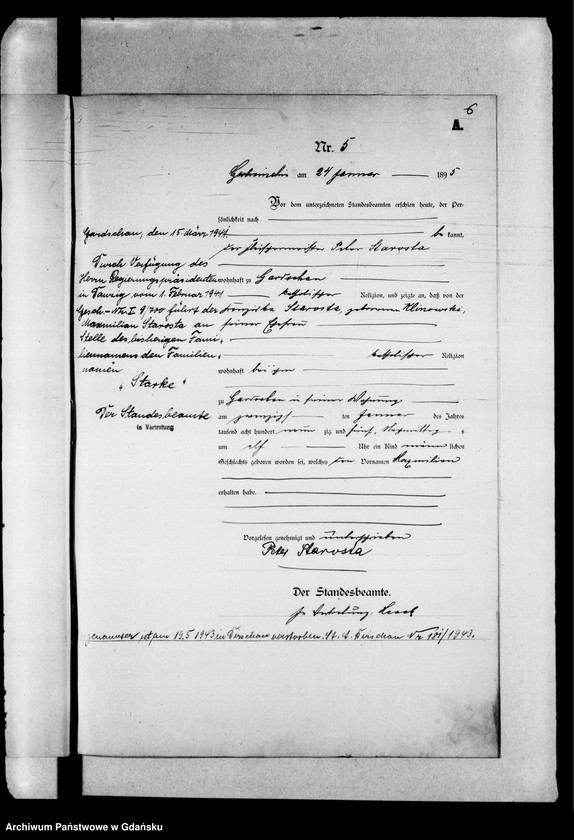 6
A.
Nr. 5
am 24 Januar 1895
Vor dem unterzeichneten Standesbeamten erschien heute, der Per-
sönlichkeit nach
be kannt,
der Fleischermeister Peter Starosta
wohnhaft zu Gardschau
katholischer Religion, und zeigte an, daß von der
Franziska Starosta, geborenen Klinowski,
seiner Ehefrau
katholischer Religion
wohnhaft bei ihm
zu Gardschau in seiner Wohnung
am zwanzigsten Januar des Jahres
tausend acht hundert neun zig und fünf, Vormittags
um elf Uhr ein Kind männlichen
Geschlechts geboren worden sei, welches den Vornamen Maximilian
erhalten habe.
Vorgelesen genehmigt und unterschrieben
Peter Starosta
Der Standesbeamte.
In Vertretung.
Gardschau, den 15 März 1941
Durch Verfügung des
Herrn Regierungspräsidenten
in Danzig vom 1. Februar 1941
Gesch.-Nr. I 9/700 führt der
Maximilian Starosta an
Stelle des bisherigen Fami-
liennamens den Familien-
namen
"Starke"
Der Standesbeamte
in Vertretung
ist am 19.5 1943 in Dirschau verstorben. St. A. Dirschau Nr 181/1943.
Archiwum Państwowe w Gdańsku